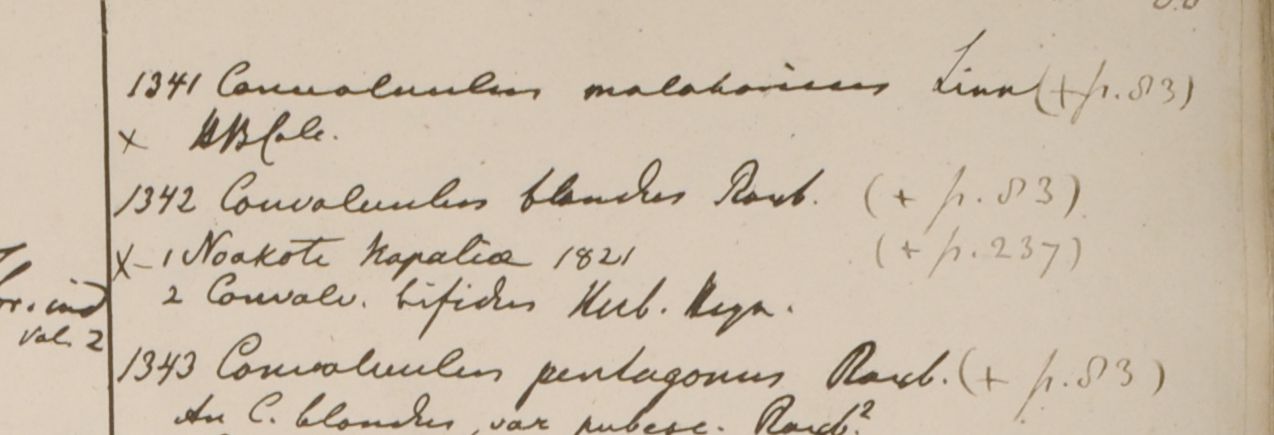 1341 Convolvulus malabaricus Linn (+ p. 83)
x HBCalc.
1342 Convolvulus blandus Roxb. (+ p. 83)
x-1 Noakote Napaliæ 1821 (+ p. 237)
2 Convolv. bifidus Herb. Heyn.
ind
vol. 2
1343 Convolvulus pentagonus Roxb. (+ p. 83)
An C. blandus, var pubesc. Roxb.?